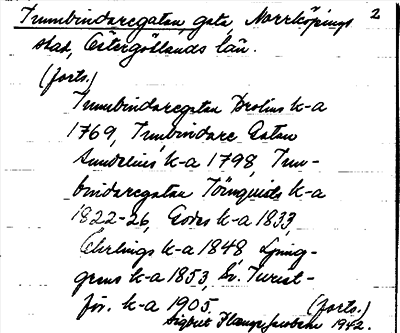 Tunnbindaregatan gata, Norrköpings 2
stad, Östergötlands län.
(forts.)
Tunnbindaregatan Brolins k-a
1769, Tunbindare Gatan
Sundelius' k-a 1798, Tun-
bindaregatan Törnquists k-a
1822-26, Godes k-a 1833,
Ehrlings k-a 1848, Ljung-
grens k-a 1853, Sv. Turist-
för. k-a 1905.
(forts.)
1942.